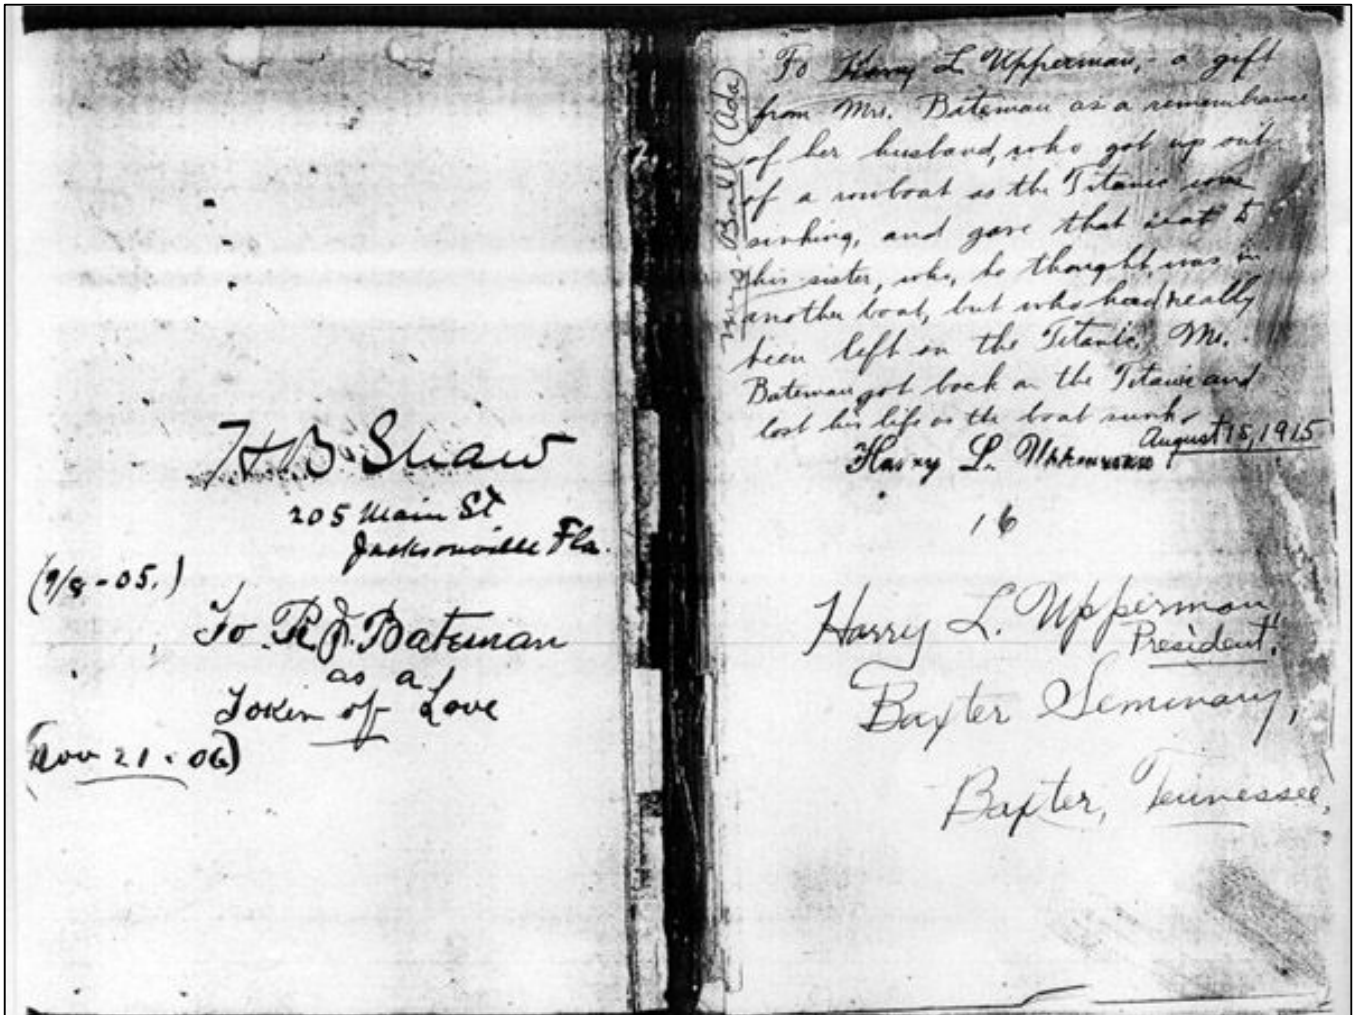 H B Shaw
205 Main St
Jacksonville Fla.
(9/8-05.)
To R. J. Bateman
as a
Token of Love
(Nov 21-06)
To Harry L. Upperman, - a gift
from Mrs. Bateman as a remembrance
of her husband, who got up out
of a rowboat as the Titanic was
sinking, and gave that seat to
his sister, who, he thought, was in
another boat, but who had really
been left on the Titanic. Mr.
Bateman got back on the Titanic and
lost his life as the boat sunk.
August 15, 1915
Harry L. Upperman
Ball (Ada)
16
Harry L. Upperman,
President.
Baxter Seminary,
Baxter, Tennessee.